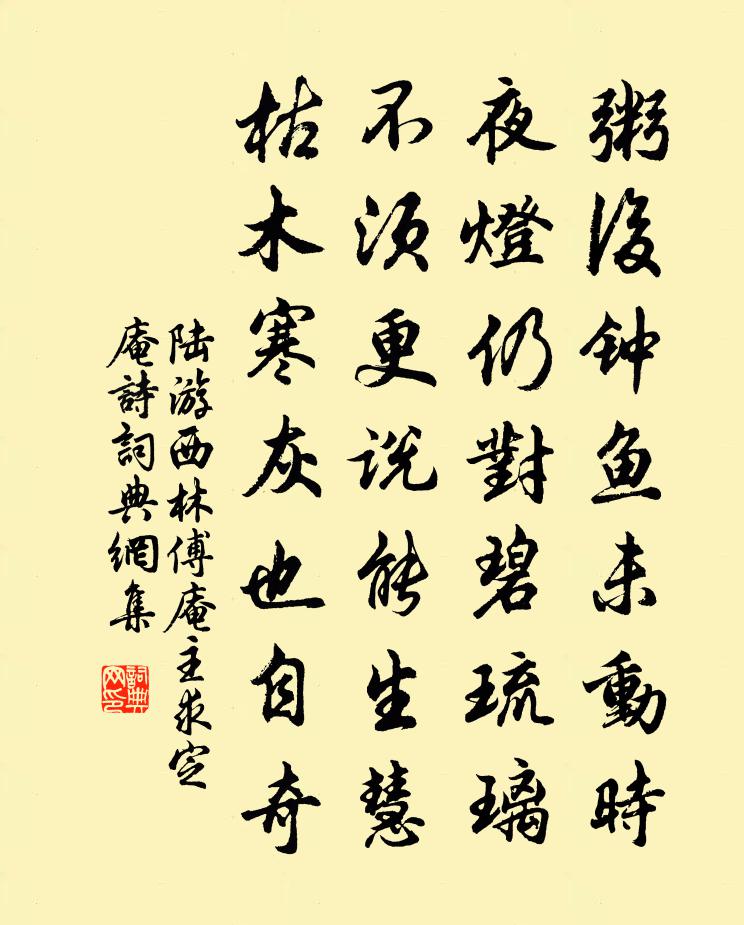 粥後钟鱼未動時
夜燈仍對碧琉璃
不须更说能生慧
枯木寒灰也自奇
陆游西林傅庵主求定
庵詩詞典網集
詞典网印